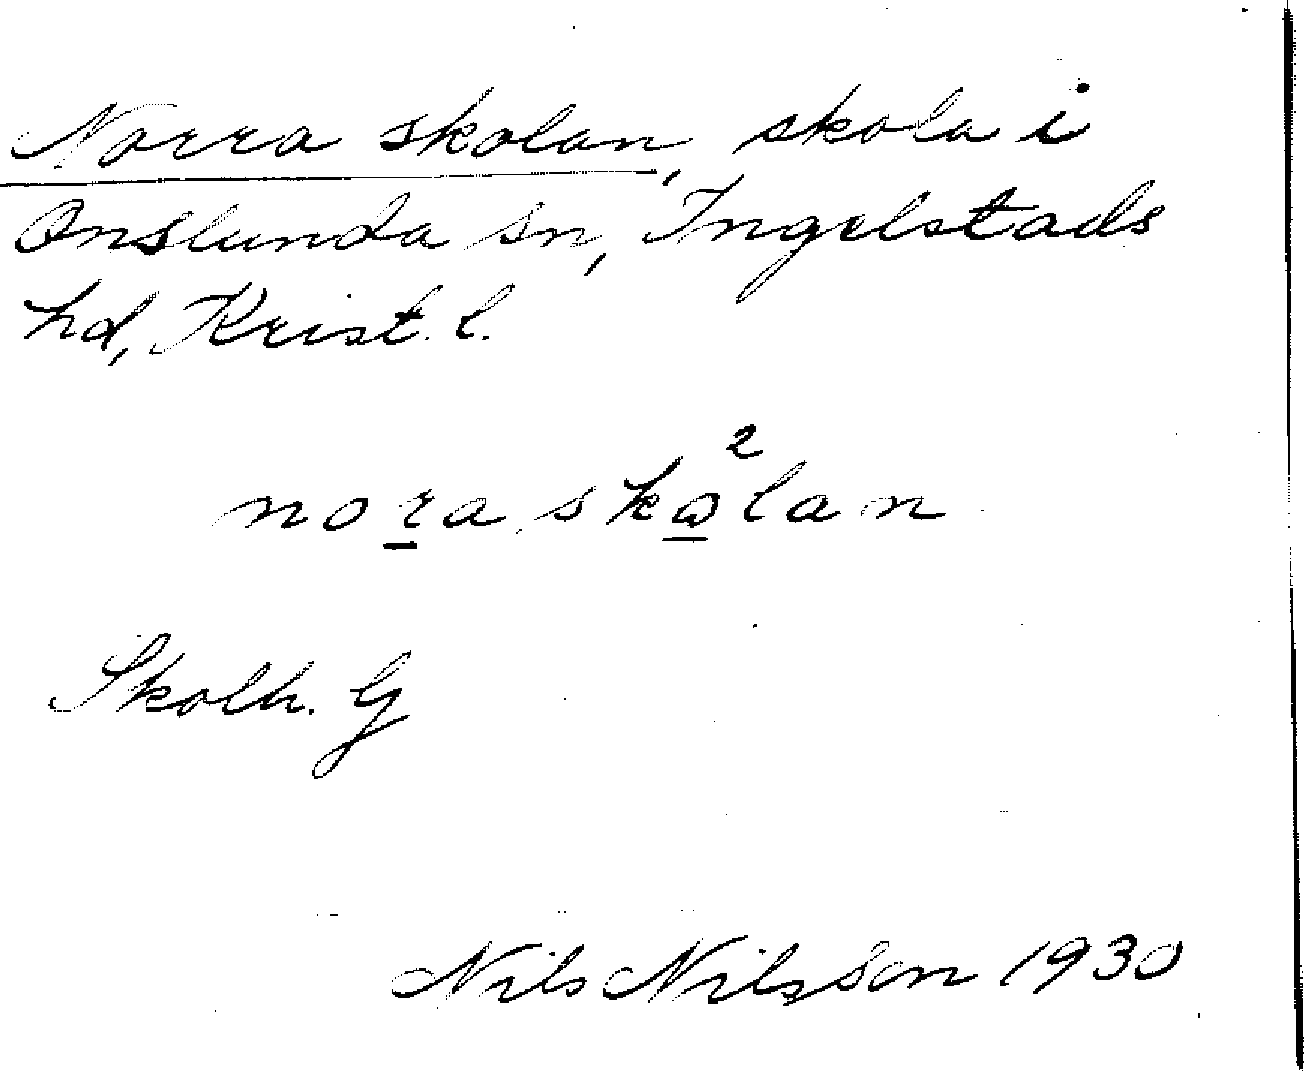 Norra skolan, skola i
Onslunda sn, Ingelstads
hd, Krist. l.
nor̲a skω̲²lan
Skolh. G
Nils Nilsson 1930